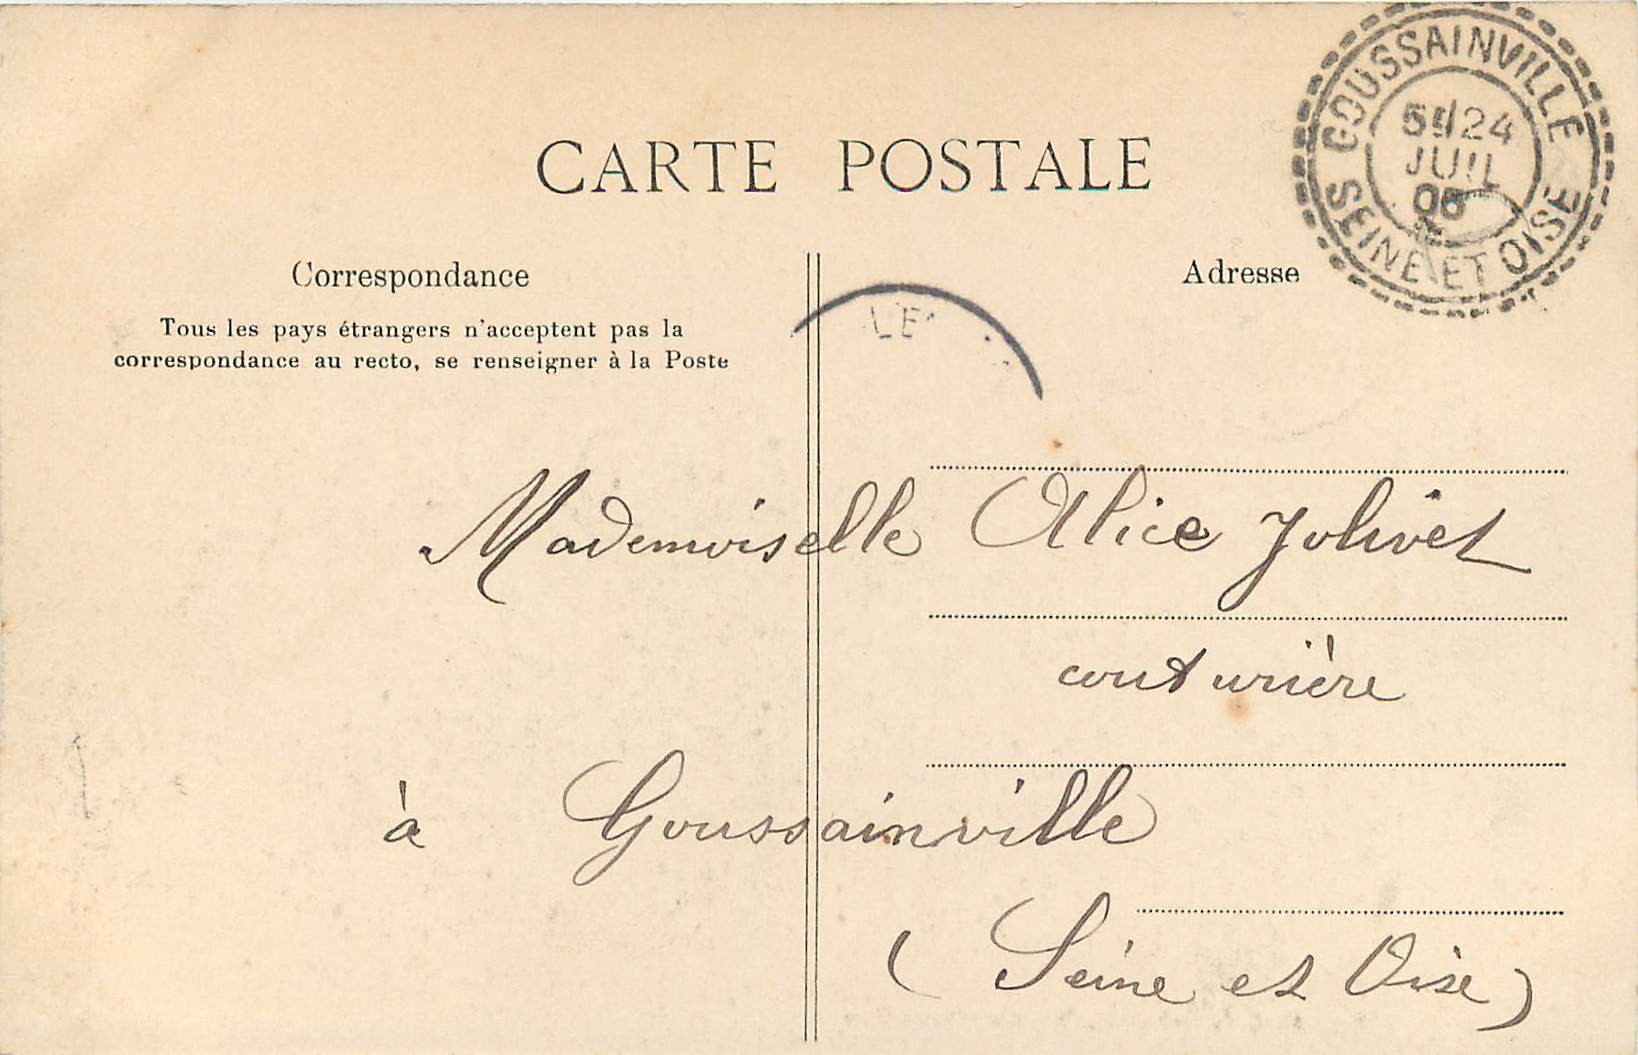 CARTE POSTALE
GOUSSAINVILLE
24
JUIL
SEINE ET OISE
Correspondance
Adresse
Tous les pays étrangers n'acceptent pas la
correspondance au recto, se renseigner à la Poste
LE
Mademoiselle Alice Jolivet
couturière
à Goussainville
(Seine et Oise)